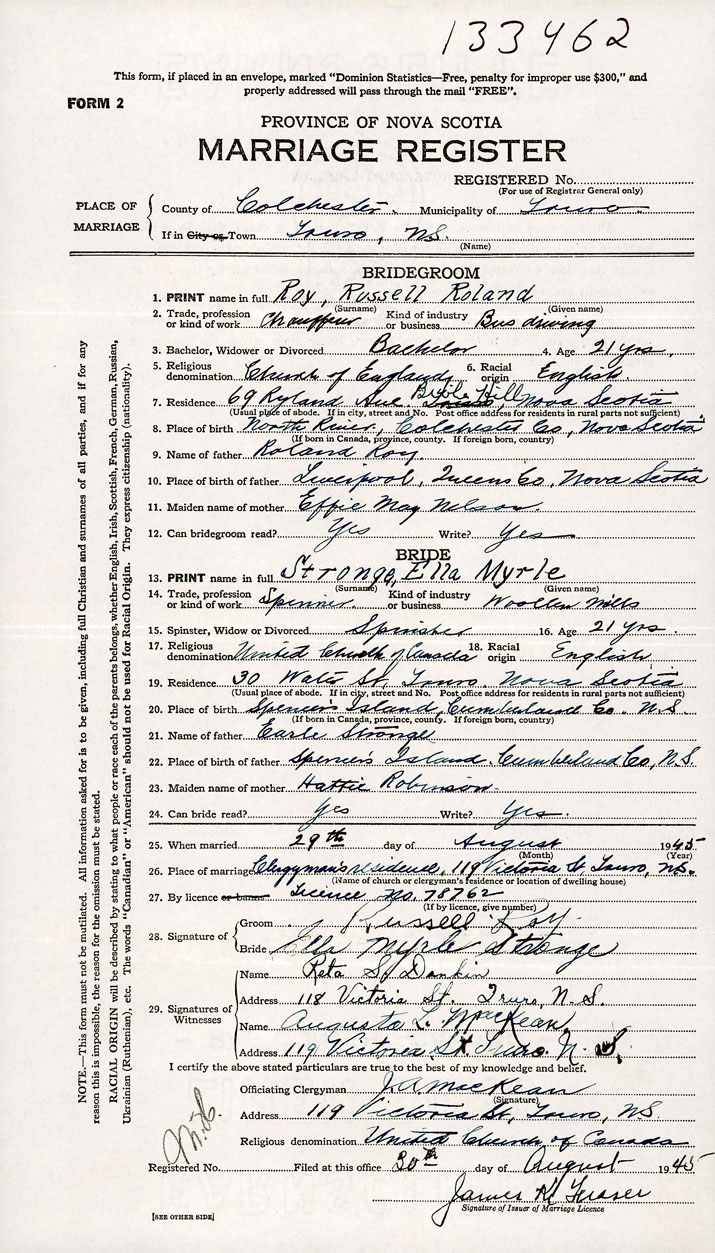 133462
This form, if placed in an envelope, marked “Dominion Statistics—Free, penalty for improper use $300,” and
properly addressed will pass through the mail “FREE”.
FORM 2
PROVINCE OF NOVA SCOTIA
MARRIAGE REGISTER
REGISTERED No.
(For use of Registrar General only)
PLACE OF MARRIAGE
County of Colchester. Municipality of Truro
If in City or Town Truro, NS.
(Name)
BRIDEGROOM
1. PRINT name in full Roy, Russell Roland
(Surname) (Given name)
2. Trade, profession or kind of work Chauffeur Kind of industry or business Bus driving
3. Bachelor, Widower or Divorced Bachelor 4. Age 21 yrs.
5. Religious denomination Church of England 6. Racial origin English.
7. Residence 69 Ryland Ave. Bible Hill Truro, Nova Scotia
(Usual place of abode. If in city, street and No. Post office address for residents in rural parts not sufficient)
8. Place of birth North River, Colchester Co, Nova Scotia
(If born in Canada, province, county. If foreign born, country)
9. Name of father Roland Roy.
10. Place of birth of father Liverpool, Queens Co, Nova Scotia
11. Maiden name of mother Effie May Nelson.
12. Can bridegroom read? Yes Write? Yes
BRIDE
13. PRINT name in full Stronge, Ella Myrle
(Surname) (Given name)
14. Trade, profession or kind of work Spinner Kind of industry or business Woollen mills
15. Spinster, Widow or Divorced Spinster 16. Age 21 yrs.
17. Religious denomination United Church of Canada 18. Racial origin English
19. Residence 30 Water St, Truro, Nova Scotia
(Usual place of abode. If in city, street and No. Post office address for residents in rural parts not sufficient)
20. Place of birth Spencer's Island, Cumberland Co. N.S.
(If born in Canada, province, county. If foreign born, country)
21. Name of father Earle Stronge
22. Place of birth of father Spencer's Island, Cumberland Co, N.S.
23. Maiden name of mother Hattie Robinson.
24. Can bride read? Yes Write? Yes.
25. When married 29th day of August 1945
(Month) (Year)
26. Place of marriage Clergyman's residence, 119 Victoria St Truro, NS.
(Name of church or clergyman's residence or location of dwelling house)
27. By licence or banns Licence No. 78762
(If by licence, give number)
28. Signature of
Groom Russell Roy.
Bride Ella Myrle Stronge
29. Signatures of Witnesses
Name Reta S. Dankin
Address 118 Victoria St. Truro, N.S.
Name Augusta L. MacKean,
Address 119 Victoria St Truro. N.S.
I certify the above stated particulars are true to the best of my knowledge and belief.
Officiating Clergyman J.A. MacKean
(Signature)
Address 119 Victoria St, Truro, NS.
Religious denomination United Church of Canada
Registered No. Filed at this office 30th day of August 1945
James K. Fraser
Signature of Issuer of Marriage Licence
[SEE OTHER SIDE]
NOTE.—This form must not be mutilated. All information asked for is to be given, including full Christian and surnames of all parties, and if for any
reason this is impossible, the reason for the omission must be stated.
RACIAL ORIGIN will be described by stating to what people or race each of the parents belongs, whether English, Irish, Scottish, French, German, Russian,
Ukrainian (Ruthenian), etc. The words “Canadian” or “American” should not be used for Racial Origin. They express citizenship (nationality).